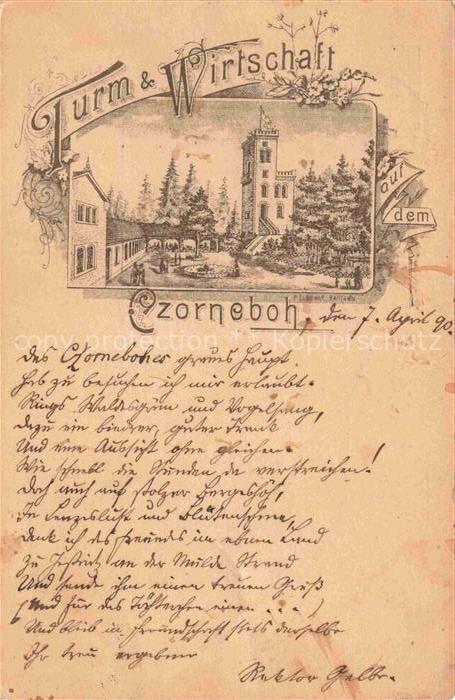 Turm & Wirtschaft
auf
dem
Czorneboh, den 7. April 90.
Des Czornebohes graues Haupt
Hab zu besuchen ich mir erlaubt.
Rings Waldesgrün und Vogelsang,
Dazu ein bied'rer, guter Trank
Und eine Aussicht ohne gleichen.
Wie schnell die Stunden da verstreichen!
Doch auch auf stolzer Bergeshöh',
In Lenzeslust und Blütenschnee,
Denk ich des Freundes im ebnen Land
Zu an der Mulde Strand
Und sende ihm einen treuen Gruß
(Und für das Töchterchen einen . . . .)
Und bleib in Freundschaft stets derselbe
Ihr treu ergebener
Rektor Gelbe.
copyright protection Kopierschutz